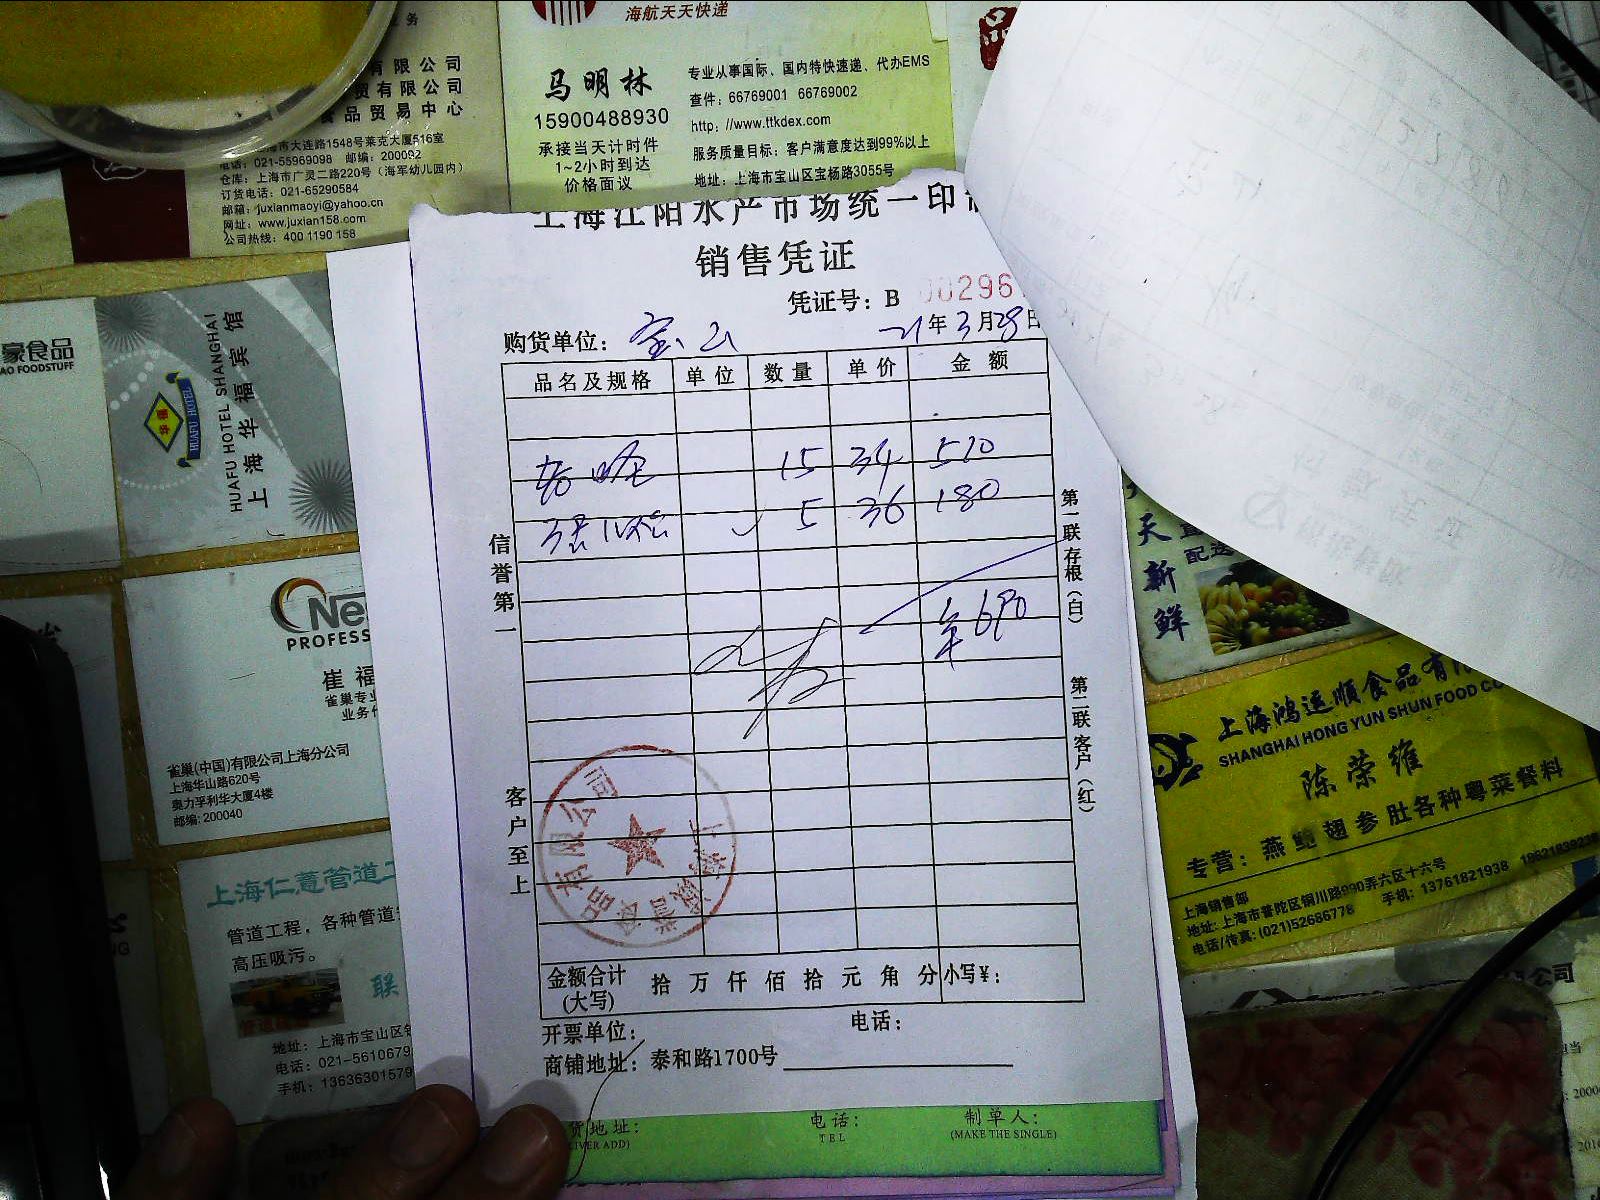 海航天天快递
马明林
15900488930
承接当天计时件
1~2小时到达
价格面议
专业从事国际、国内特快速递、代办EMS
查件: 66769001 66769002
http: //www.ttkdex.com
服务质量目标: 客户满意度达到99%以上
地址: 上海市宝山区宝杨路3055号
务
有限公司
贸有限公司
食品贸易中心
海市大连路1548号莱克大厦516室
电话: 021-55969098 邮编: 200092
仓库: 上海市广灵二路220号（海军幼儿园内）
订货电话: 021-65290584
邮箱: juxianmaoyi@yahoo.cn
网址: www.juxian158.com
公司热线: 400 1190 158
豪食品
AO FOODSTUFF
HUAFU HOTEL
HUAFU HOTEL SHANGHAI
上海华福宾馆
Ne
PROFESS
崔福
雀巢专业
业务代
雀巢(中国)有限公司上海分公司
上海华山路620号
奥力孚利华大厦4楼
邮编: 200040
上海仁薏管道工
管道工程，各种管道
高压吸污。
联
地址: 上海市宝山区
电话: 021-5610679
手机: 1363630157
上海江阳水产市场统一印制
销售凭证
凭证号: B 00296
购货单位: 宝山 21年3月28日
品名及规格 单位 数量 单价 金额
15 34 510
5 36 180
690
信誉第一
客户至上
第一联存根（白）
第二联客户（红）
有限公司
上海
食品
金额合计(大写) 拾 万 仟 佰 拾 元 角 分 小写¥:
开票单位: 电话:
商铺地址: 泰和路1700号
货地址: 电话: 制单人:
TEL (MAKE THE SINGLE)
天新鲜
配送
上海鸿运顺食品有限
SHANGHAI HONG YUN SHUN FOOD CO
陈荣维
专营: 燕鲍翅参肚各种粤菜餐料
上海销售部
地址: 上海市普陀区铜川路990弄六区十六号
电话/传真: (021)52686778 手机: 13761821938
公司